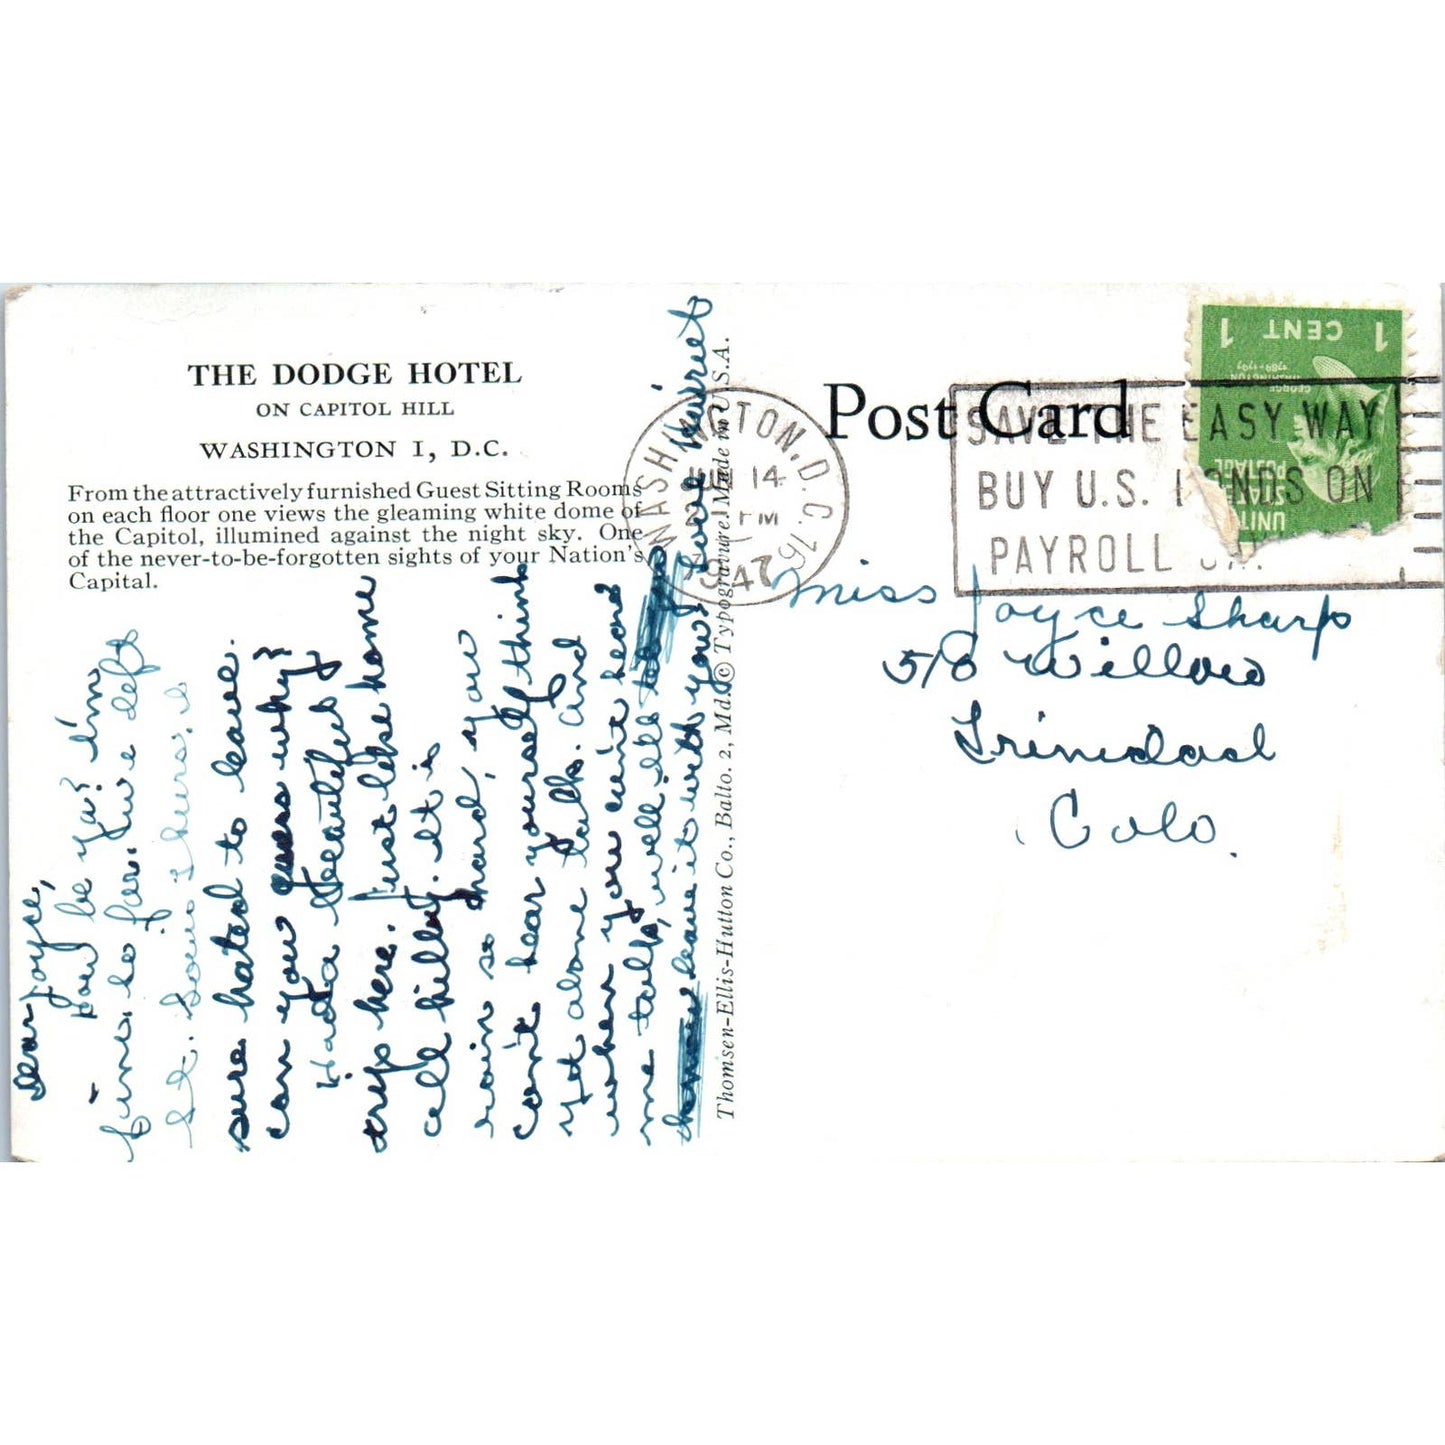 THE DODGE HOTEL
ON CAPITOL HILL
WASHINGTON I, D.C.
From the attractively furnished Guest Sitting Rooms
on each floor one views the gleaming white dome of
the Capitol, illumined against the night sky. One
of the never-to-be-forgotten sights of your Nation's
Capital.
Dear Joyce,
How be ya? I'm
fine so far. I've left
St. Louis &
sure hated to leave.
can you guess why?
Had a beautiful
trip here. Just like home
all hilly. It is
rain so hard, you
can't hear yourself think
yet alone talk. and
when you can't hear
me talk, well I'll
leave it with you. Love Harriet
Thomsen-Ellis-Hutton Co., Balto. 2, Md. © Typogravure Made in U.S.A.
Post Card
WASHINGTON, D.C.
14
PM
1947
SAVE THE EASY WAY
BUY U.S. BONDS ON
PAYROLL
1 CENT 1
GEORGE
WASHINGTON
1789-1797
UNITED
STATES
POSTAGE
Miss Joyce Sharp
510 Willow
Trinidad
Colo.